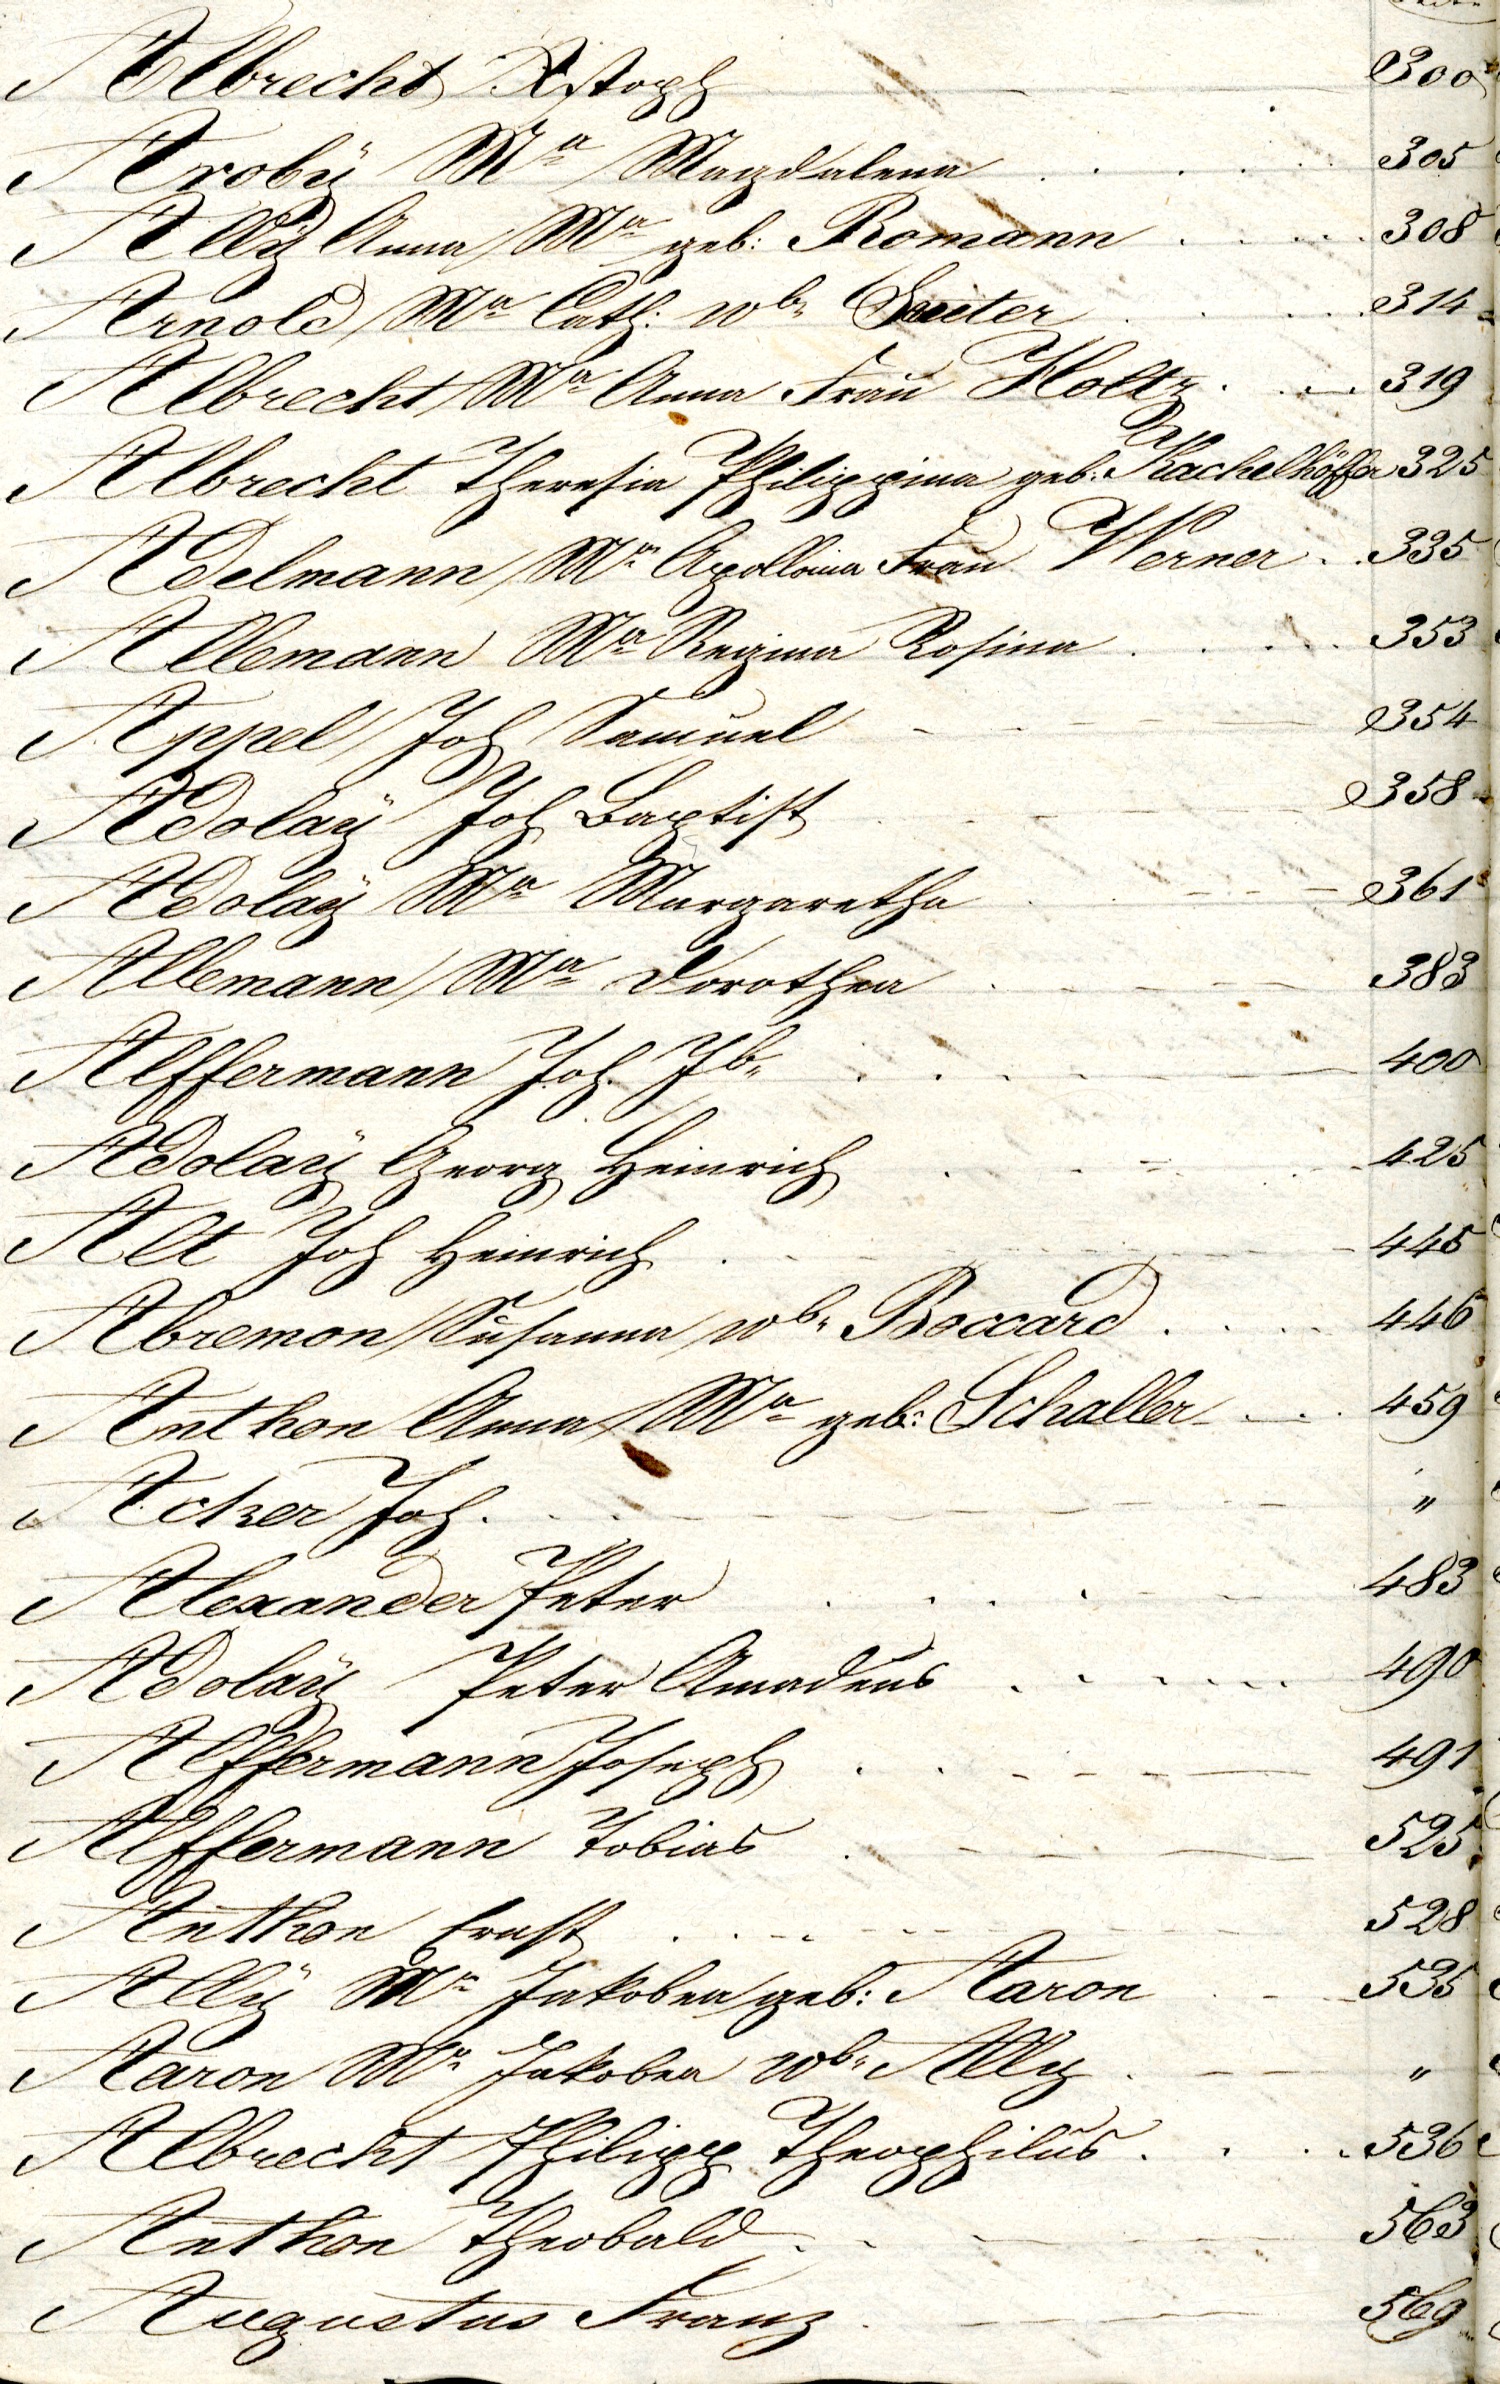 Albrecht Xstoph 300
Arobÿ Ma Magdalena 305
Allÿ Anna Ma geb: Romann 308
Arnold Ma Cath: wb. Sutter 314
Albrecht Ma Anna Frau Holtz 319
Albrecht Theresia Philippina geb: Kachelhöffer 325
Adelmann Ma Apollonia Frau Werner 335
Allemann Ma Regina Rosina 353
Appel Joh Samuel 354
Adolaÿ Joh Baptist 358
Adolaÿ Ma Margaretha 361
Allemann Ma Dorothea 383
Alffermann Joh. Jb. 400
Adolaÿ Georg Heinrich 425
Alt Joh Heinrich 445
Abremon Susanna wb. Boccard 446
Anthon Anna Ma geb: Schaller 459
Acker Joh. "
Alexander Peter 483
Adolaÿ Peter Amadeus 490
Alffermann Joseph 491
Alffermann Tobias 525
Anthon Ernst 528
Allÿ Ma Jakobea geb: Aaron 535
Aaron Ma Jakobea wb. Allÿ "
Albrecht Philipp Theophilus 536
Anthon Theobald 563
Augustus Franz 569